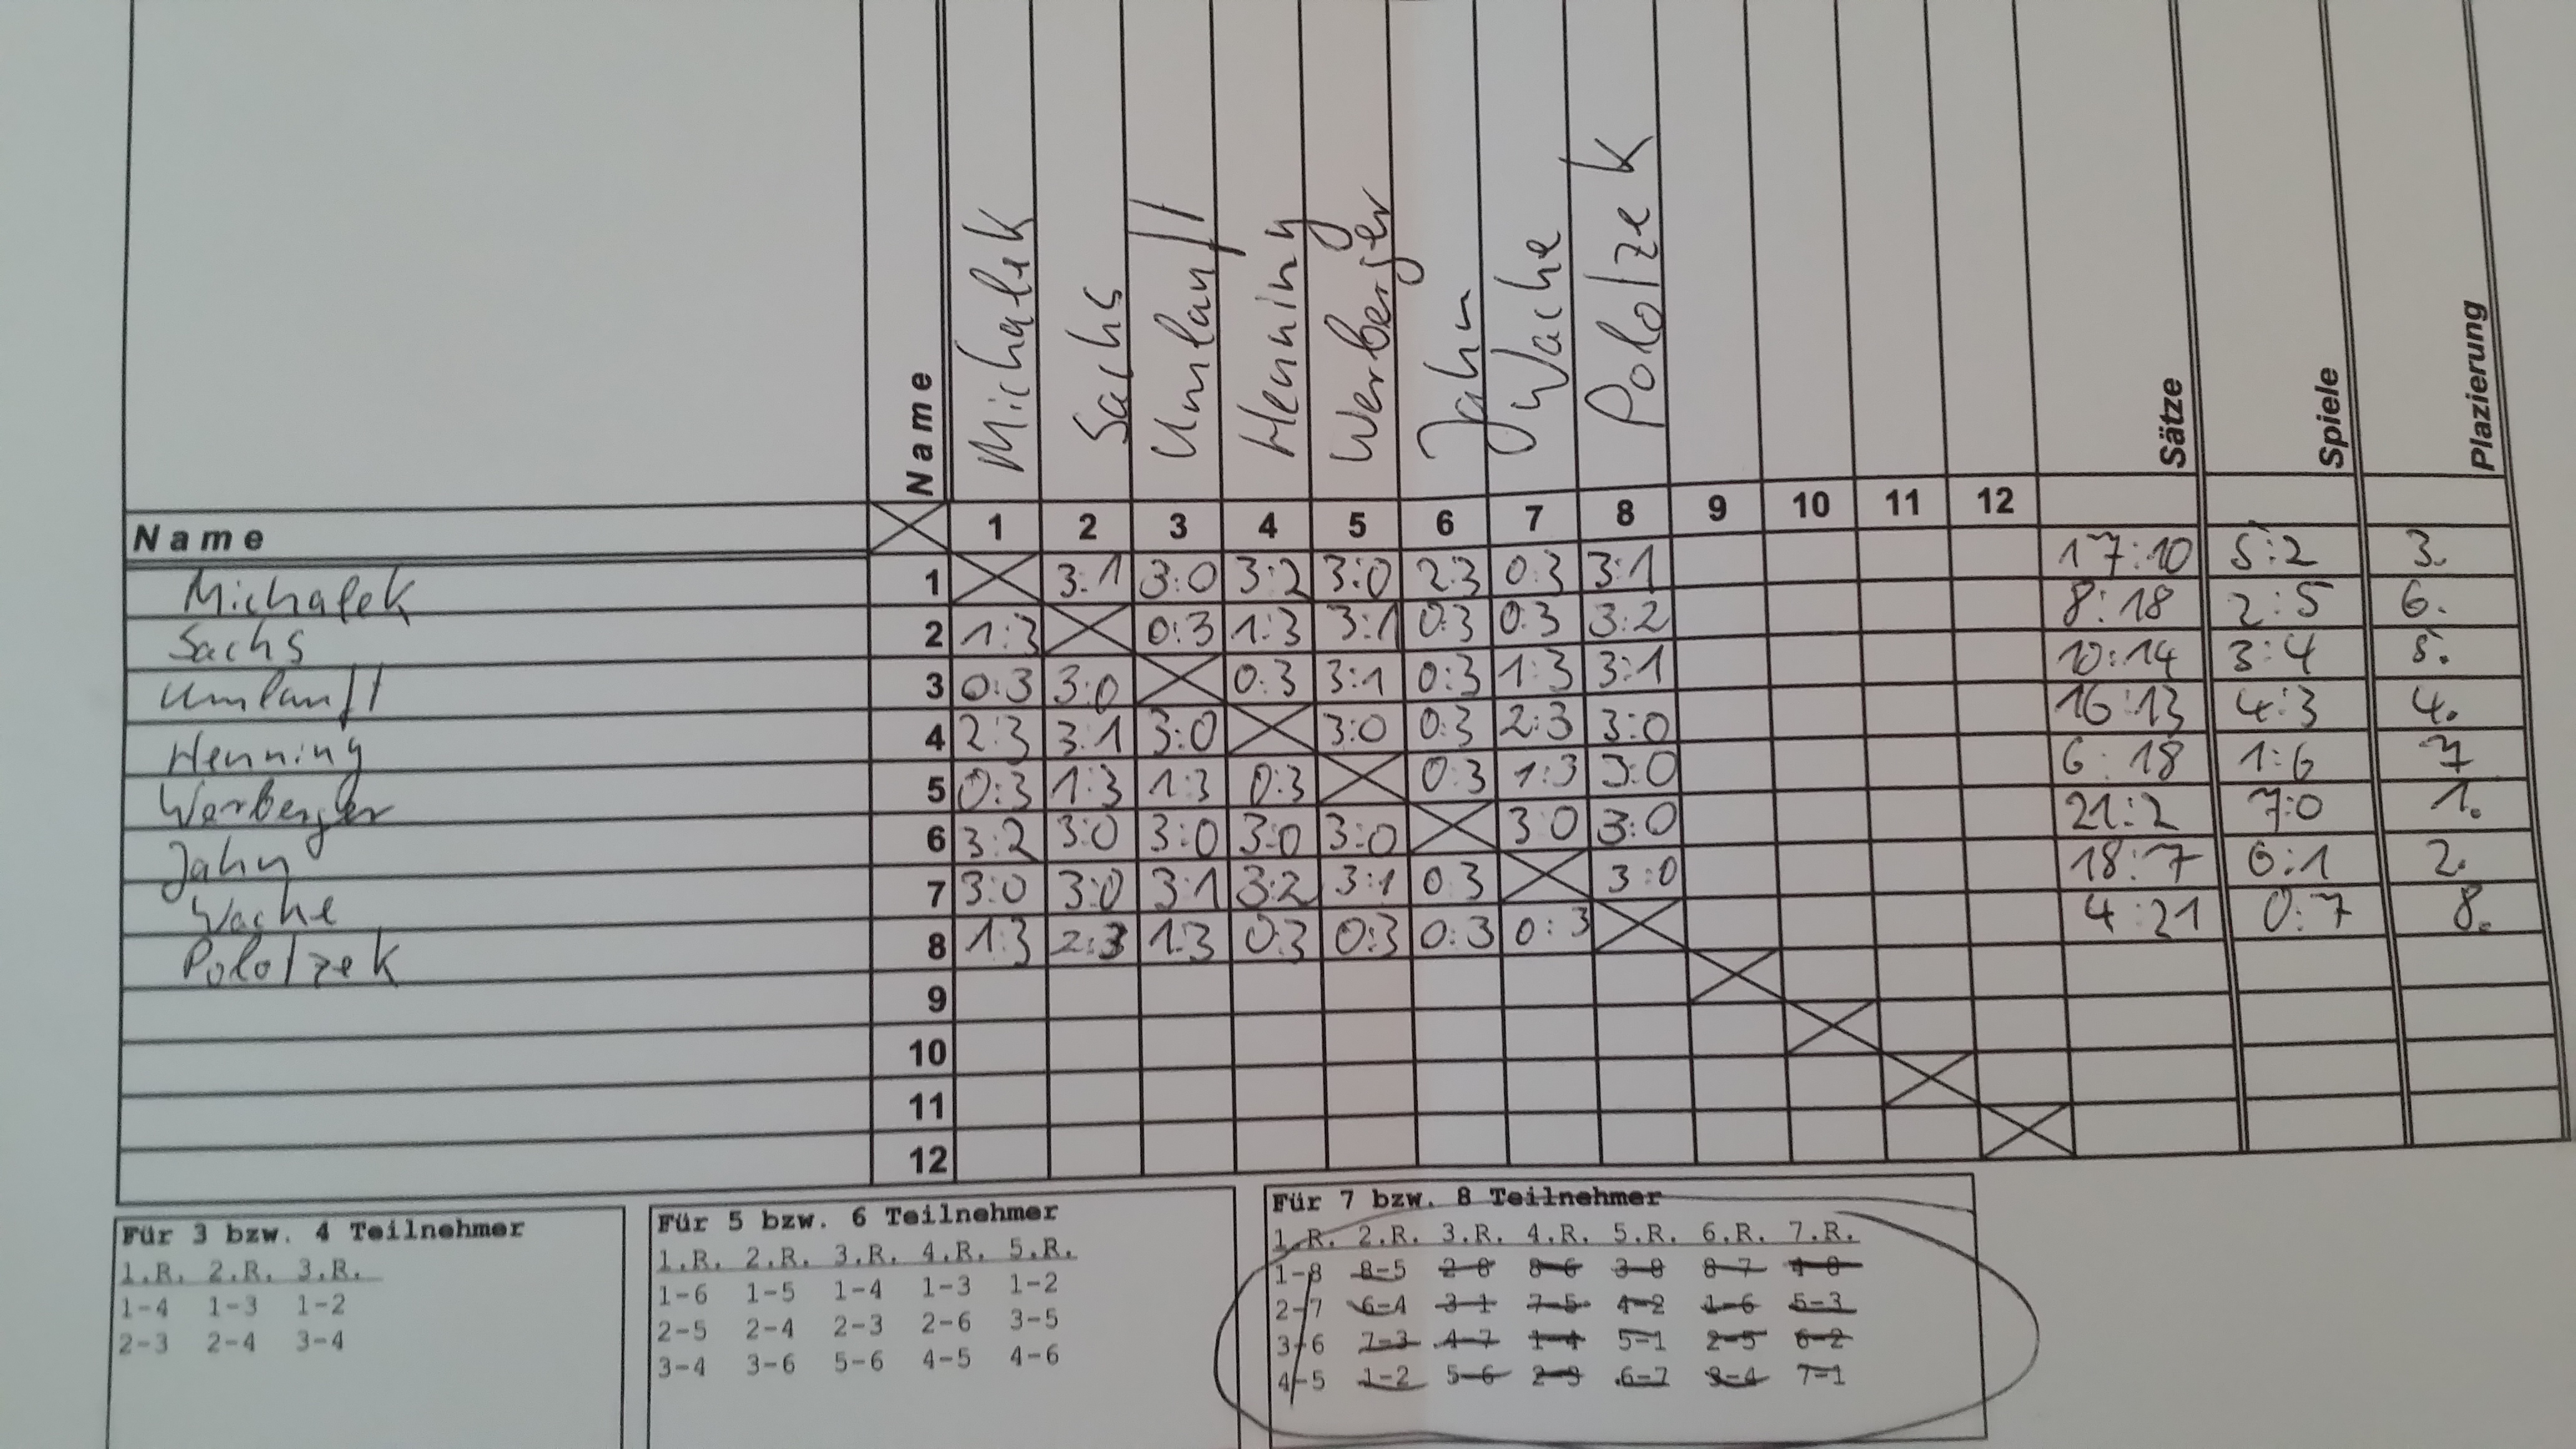 Michalek Sachs Umlauft Henning Werberger Jahn Wache Polotzek
Name Name 1 2 3 4 5 6 7 8 9 10 11 12 Sätze Spiele Plazierung
Michalek 1 3:1 3:0 3:2 3:0 2:3 0:3 3:1 17:10 5:2 3.
Sachs 2 1:3 0:3 1:3 3:1 0:3 0:3 3:2 8:18 2:5 6.
Umlauft 3 0:3 3:0 0:3 3:1 0:3 1:3 3:1 10:14 3:4 5.
Henning 4 2:3 3:1 3:0 3:0 0:3 2:3 3:0 16:13 4:3 4.
Werberger 5 0:3 1:3 1:3 0:3 0:3 1:3 3:0 6:18 1:6 7
Jahn 6 3:2 3:0 3:0 3:0 3:0 3:0 3:0 21:2 7:0 1.
Wache 7 3:0 3:0 3:1 3:2 3:1 0:3 3:0 18:7 6:1 2.
Polotzek 8 1:3 2:3 1:3 0:3 0:3 0:3 0:3 4:21 0:7 8.
9
10
11
12
Für 3 bzw. 4 Teilnehmer
1.R. 2.R. 3.R.
1-4 1-3 1-2
2-3 2-4 3-4
Für 5 bzw. 6 Teilnehmer
1.R. 2.R. 3.R. 4.R. 5.R.
1-6 1-5 1-4 1-3 1-2
2-5 2-4 2-3 2-6 3-5
3-4 3-6 5-6 4-5 4-6
Für 7 bzw. 8 Teilnehmer
1.R. 2.R. 3.R. 4.R. 5.R. 6.R. 7.R.
1-8 8-5 2-8 8-6 3-8 8-7 4-8
2-7 6-4 3-1 7-5 4-2 1-6 5-3
3-6 7-3 4-7 1-4 5-1 2-5 6-2
4-5 1-2 5-6 2-3 6-7 3-4 7-1